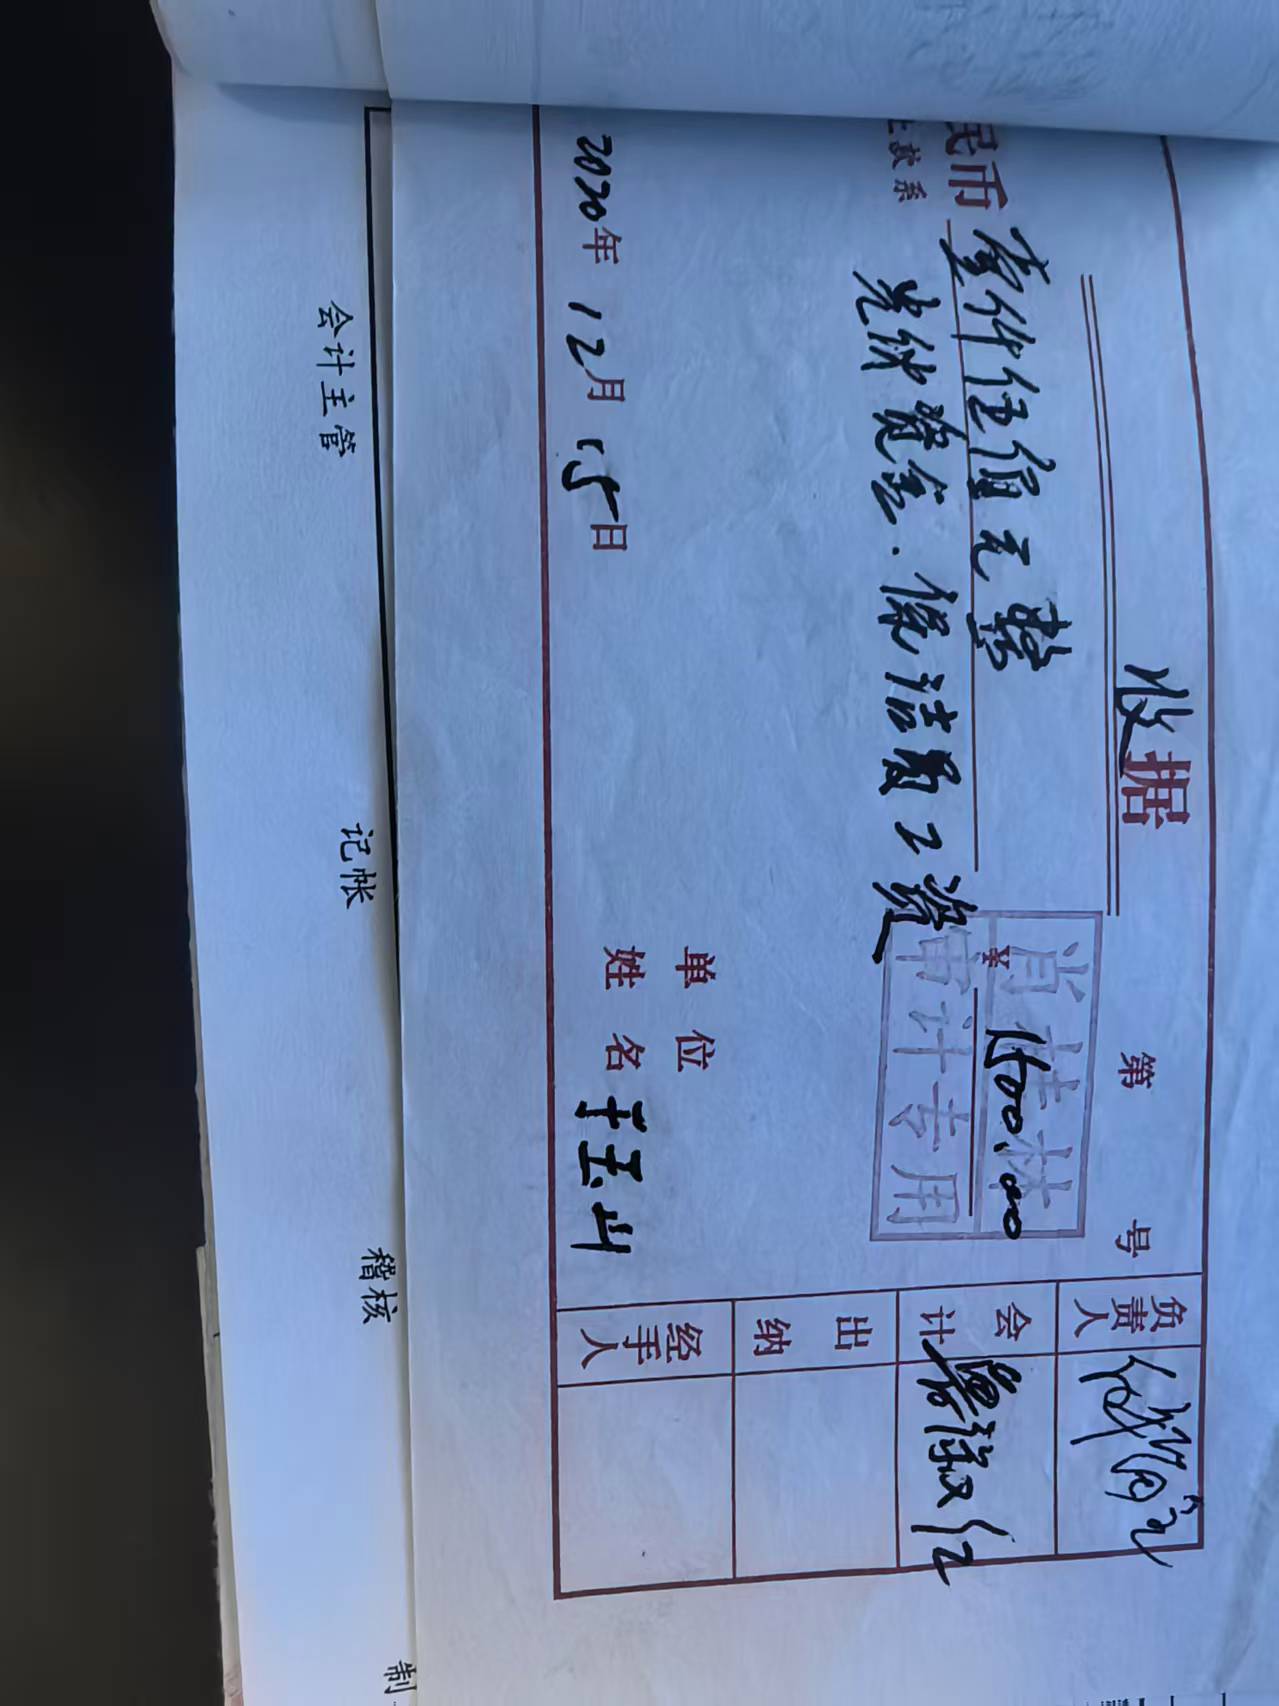 收据
第 号
民币 壹仟伍佰元整 ¥ 1500.00
款系 党建资金.保洁员工资
肖桂林
审计专用
单位
姓名 于玉山
2020年12月15日
负责人
会计
出纳
经手人
会计主管 记帐 稽核 制